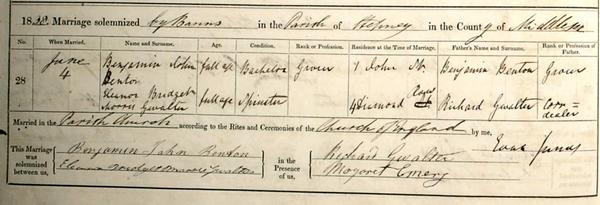 18 Marriage solemnized by Banns in the Parish of Stepney in the County of Middlesex
No. When Married. Name and Surname. Age. Condition. Rank or Profession. Residence at the Time of Marriage. Father's Name and Surname. Rank or Profession of Father.
28 June 4 Benjamin John Benton full age Bachelor Grocer 1 John St. Benjamin Benton Grocer
Eleanor Bridget Morris Gwalter full age Spinster 4 Diamond Row Richard Gwalter Corn=dealer
Married in the Parish Church according to the Rites and Ceremonies of the Church of England by me,
This Marriage was solemnized between us, Benjamin John Benton in the Presence of us, Richard Gwalter
Gwalter Margaret Emery